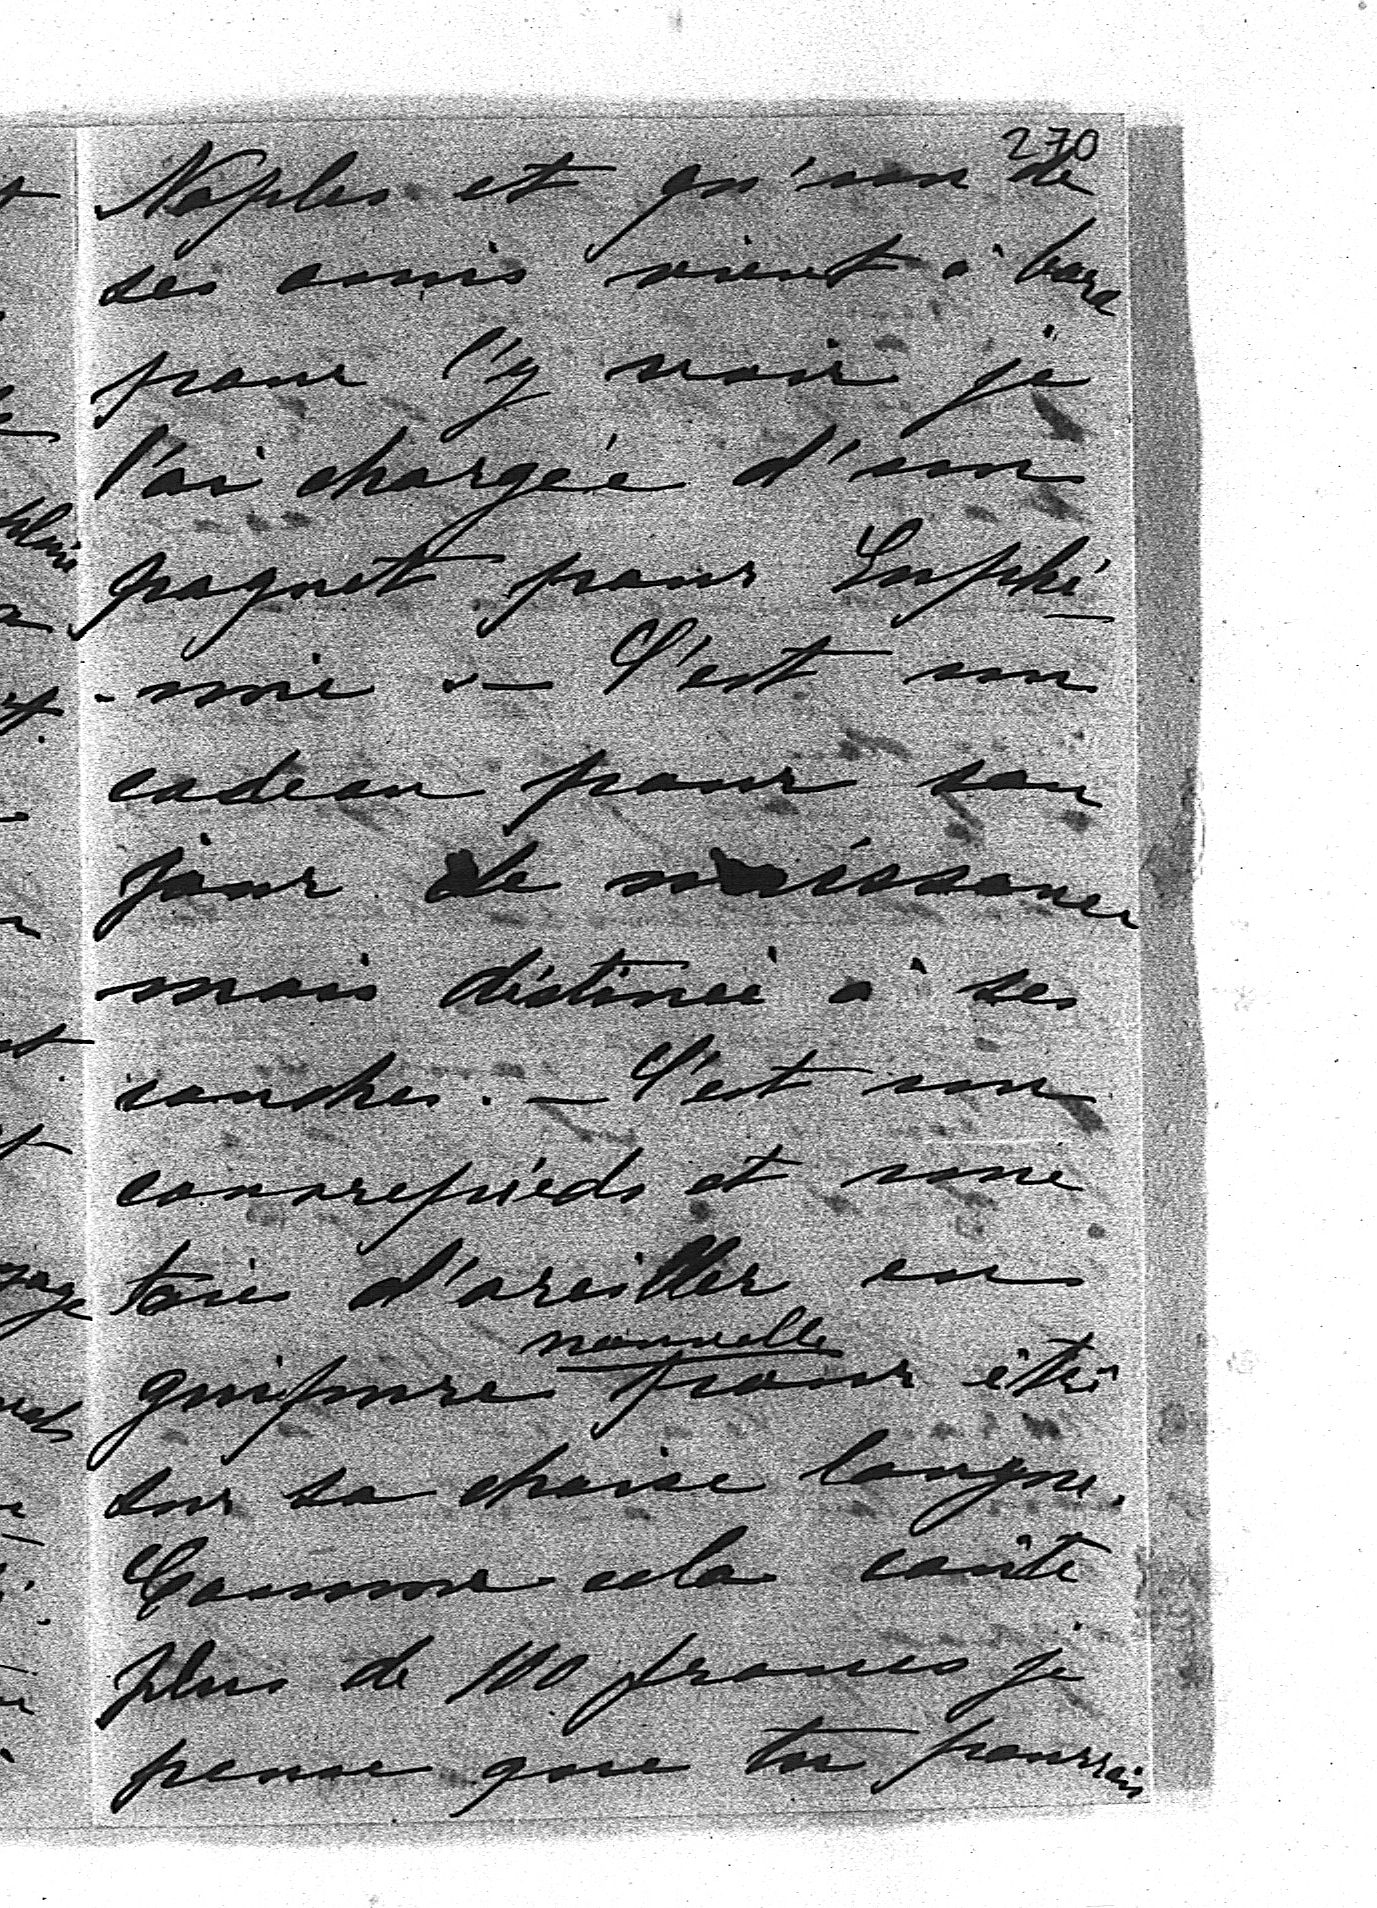 270
Naples et qu'un de
ses amis vient à bord
pour l'y voir je
l'ai chargée d'un
paquet pour Euphé
-mie - C'est un
cadeau pour son
jour de naissance
mais déstiné à ses
couches. - C'est un
couvrepieds et une
taie d'oreiller en
nouvelle
guipure pour être
sur sa chaise longue.
Comme cela coûte
plus de 100 francs je
pense que tu pourrais